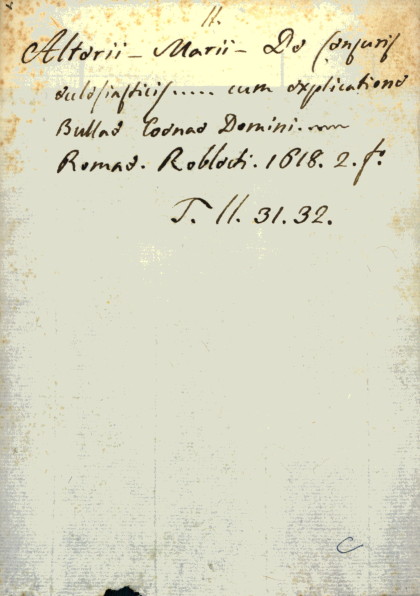 11.
Alterii - Marii - De Censuris
eclesiasticis..... cum explicatione
Bullae Coenae Domini.
Romae. Robleti. 1618. 2. fº.
T. 11. 31. 32.
C